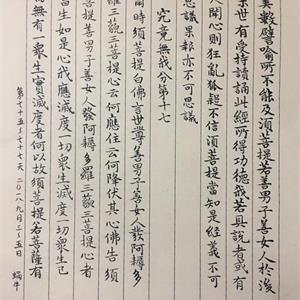 數譬喻所不能及須菩提若善男子善女人於後
末世有受持讀誦此經所得功德我若具說者或有
人聞心則狂亂狐疑不信須菩提當知是經義不可
思議果報亦不可思議
究竟無我分第十七
爾時須菩提白佛言世尊善男子善女人發阿耨多
羅三藐三菩提心云何應住云何降伏其心佛告須
菩提善男子善女人發阿耨多羅三藐三菩提心者
當生如是心我應滅度一切眾生滅度一切眾生已
而無有一眾生實滅度者何以故須菩提若菩薩有
第七十五~七十七天 二〇一八九月三~五日 蝸牛